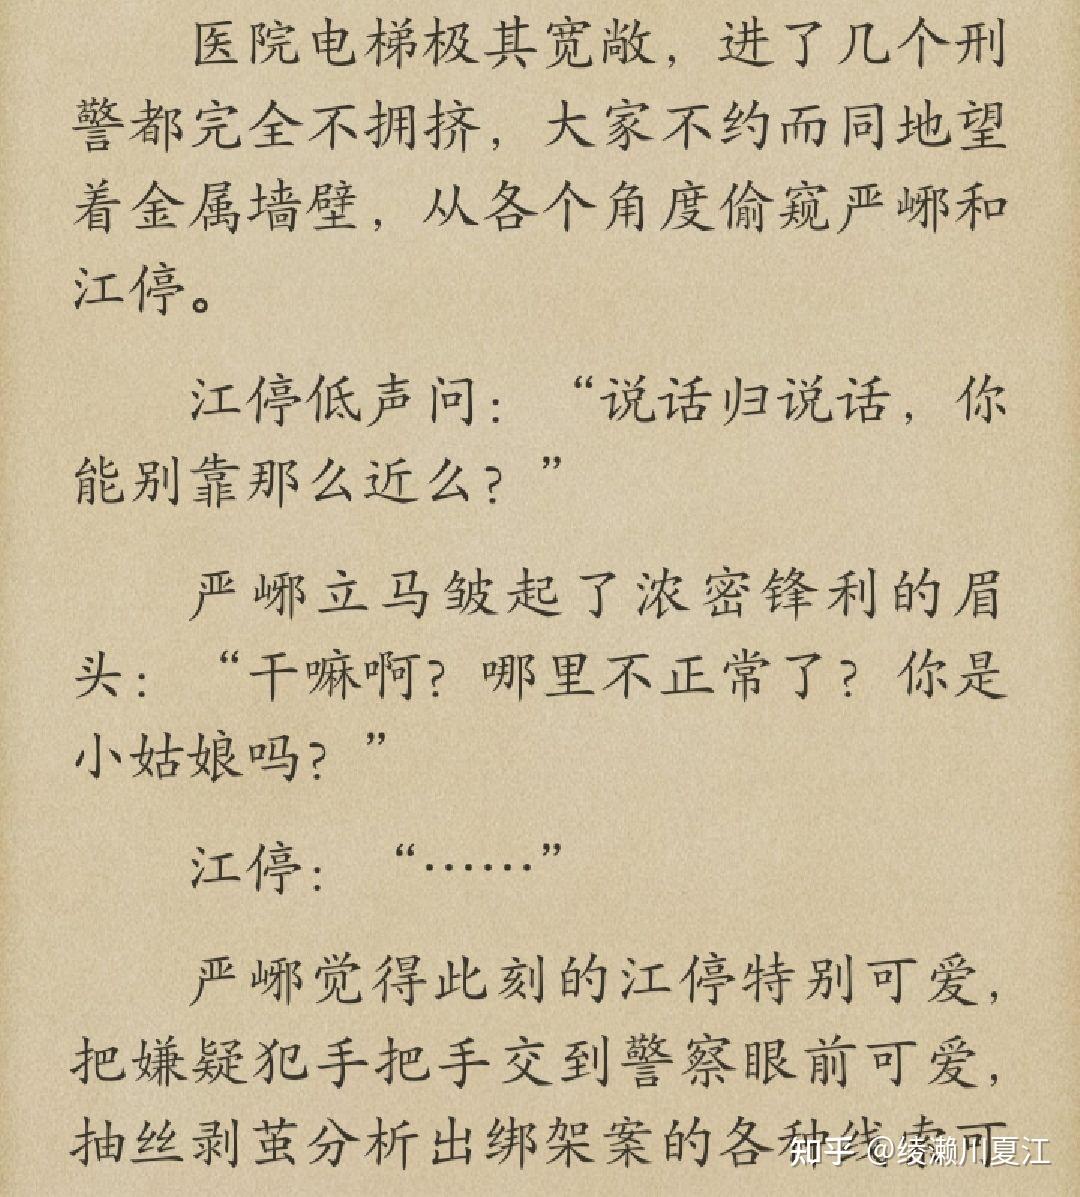 医院电梯极其宽敞，进了几个刑
警都完全不拥挤，大家不约而同地望
着金属墙壁，从各个角度偷窥严峫和
江停。
江停低声问：“说话归说话，你
能别靠那么近么？”
严峫立马皱起了浓密锋利的眉
头：“干嘛啊？哪里不正常了？你是
小姑娘吗？”
江停：“……”
严峫觉得此刻的江停特别可爱，
把嫌疑犯手把手交到警察眼前可爱，
抽丝剥茧分析出绑架案的各种线索可
知乎 @绫濑川夏江